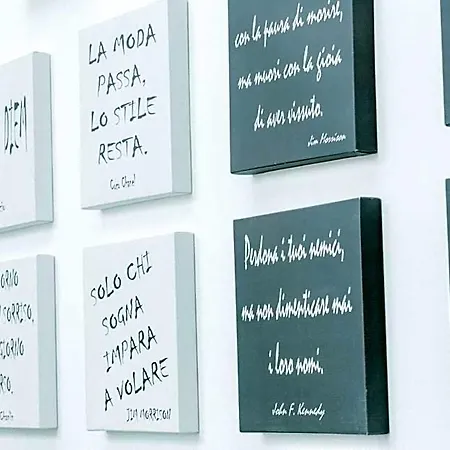 DIEM
LA MODA
PASSA,
LO STILE
RESTA.
Coco Chanel
con la paura di morire,
ma muori con la gioia
di aver vissuto.
Jim Morrison
SOLO CHI
SOGNA
IMPARA
A VOLARE
JIM MORRISON
Perdona i tuoi nemici,
ma non dimenticare mai
i loro nomi.
John F. Kennedy